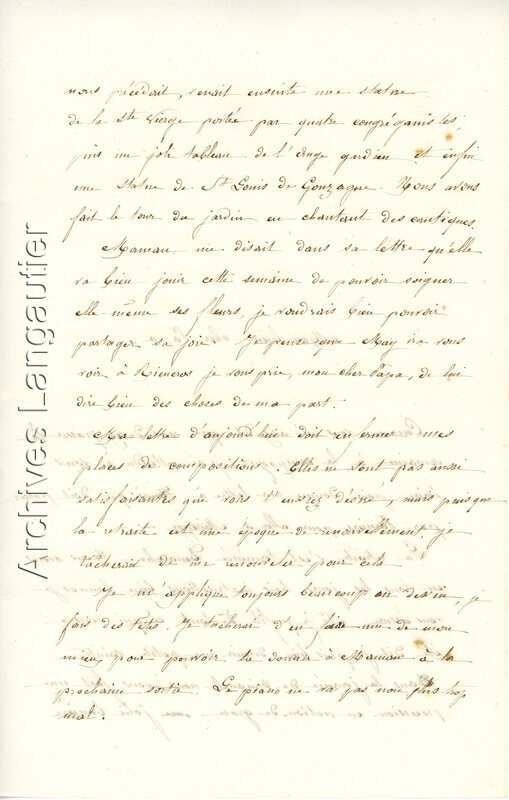 nous précédait, venait ensuite une statue
de la Ste Vierge portée par quatre congréganistes,
puis un joli tableau de l'Ange gardien et enfin
une statue de St Louis de Gonzague. Nous avons
fait le tour du jardin en chantant des cantiques.
Maman me disait dans sa lettre qu'elle
va bien jouir cette semaine de pouvoir soigner
elle même ses fleurs, je voudrais bien pouvoir
partager sa joie. Je pense que May ira vous
voir à je vous prie, mon cher Papa, de lui
dire bien des choses de ma part.
Ma lettre d'aujourd'hui doit renfermer mes
places de composition. Elles ne sont pas aussi
satisfaisantes que vous désiré, mais puisque
la retraite est une époque de renouvellement, je
tacherai de me renouveler pour cela
Je m'applique toujours beaucoup au dessin, je
fais des têtes. Je tâcherai d'en faire une de mon
mieux pour pouvoir la donner à Maman à la
prochaine sortie. Le piano ne va pas non plus trop
mal.
Archives Langautier